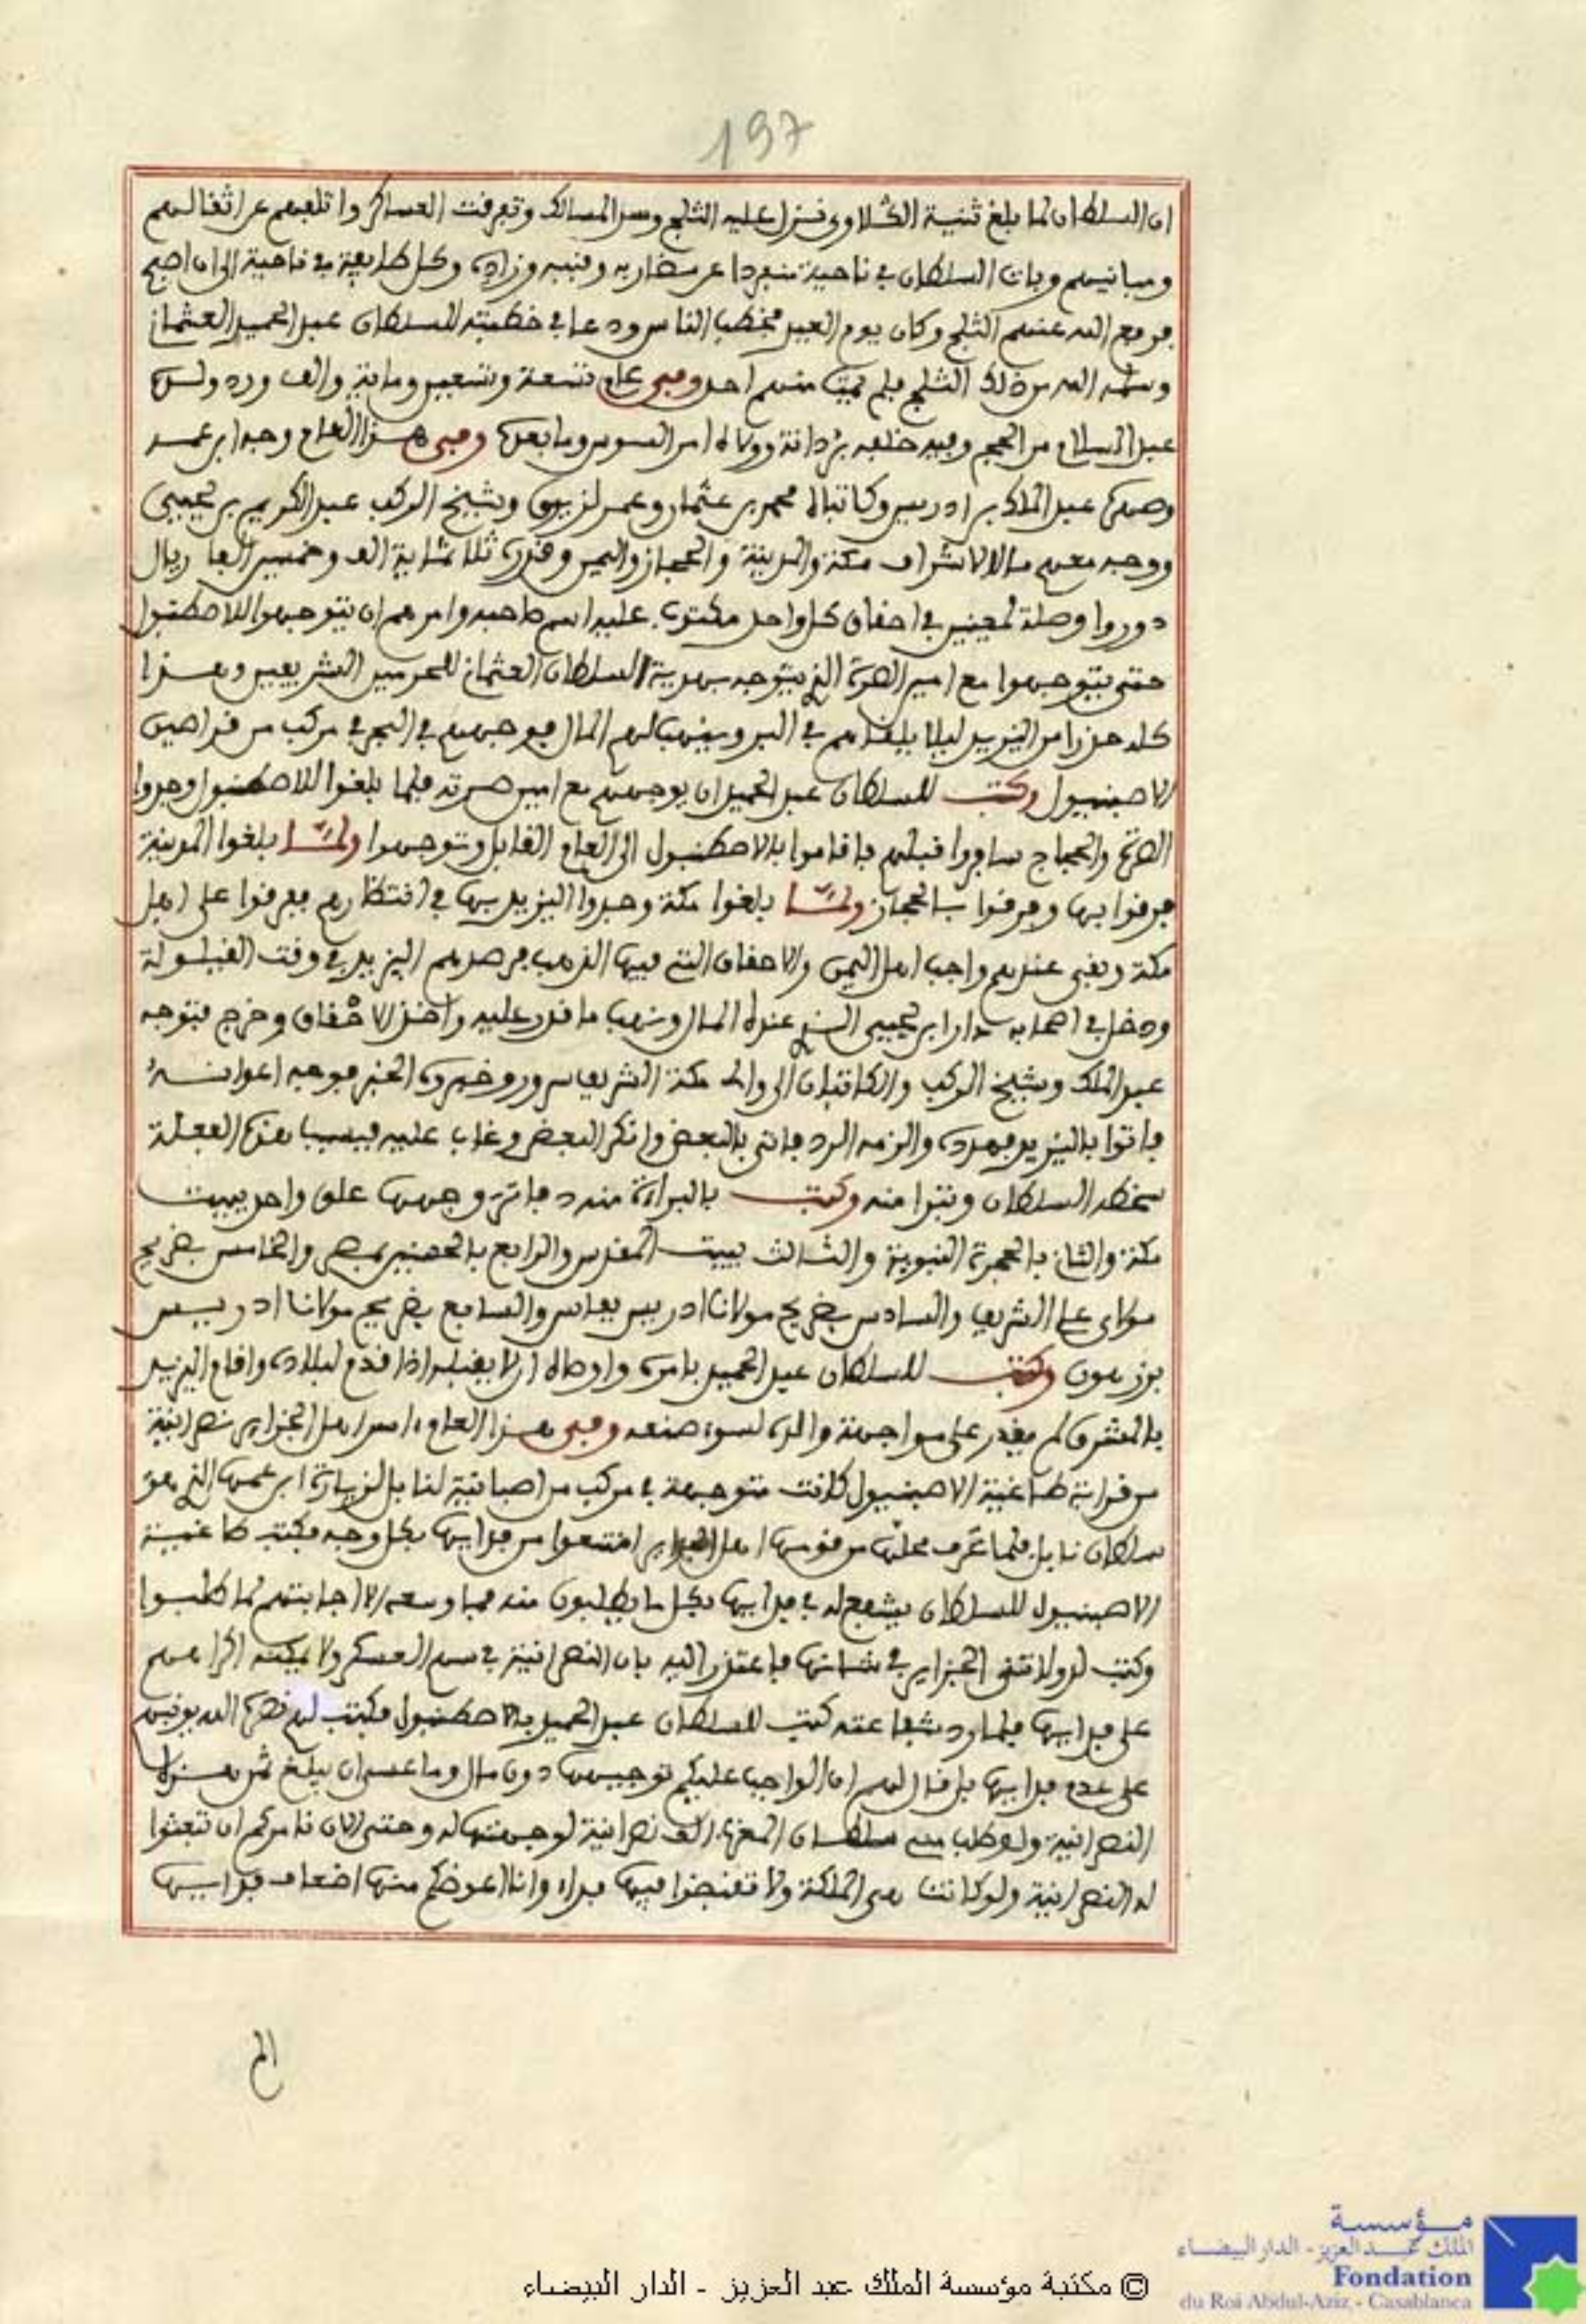 197
ان السلطان لما بلغ ثنية الڭلاوى فنزل عليه الثلج وسد المسالك وتفرقت العساكر واتلفهم عن اثقالهم
ومبانيهم وبات السلطان في ناحية منفردا عن مضاربه وقببه وزاده وكل طايفة في ناحية الى ان اصبح
فرفع الله عنهم الثلج وكان يوم العيد فخطب الناس ودعا في خطبته للسلطان عبد الحميد العثماني
وسلمه الله من ذلك الثلج فلم يمت منهم احد وفى عام تسعة وتسعين وماية والف ورد ولده
عبد السلام من الحج وفيه خلفه بردانة وولاه امر السوس وما بعدها وفى هذا العام وجه ابن عمه
وصهره عبد الملك بن ادريس وكاتباه محمد بن عثمان وعمر لزيرق وشيخ الركب عبد الكريم بن يحيى
ووجه معهم مالا لاشراف مكة والمدينة والحجاز واليمن وقدره ثلاثماية الف وخمسين الفا ريال
دوروا وصلة لمعينين في احقاق كل واحد مكتوب عليه اسم صاحبه وامرهم ان يتوجهوا للاصطنبول
حتى يتوجهوا مع امير الصرة الذي يتوجه بهدية السلطان العثماني للحرمين الشريفين وهذا
كله حذرا من اليزيد ليلا يلقاهم في البر وينهب لهم المال فوجههم في البحر في مركب من قراصين
الاصبنيول وكتب للسلطان عبد الحميد ان يوجههم مع امين صرته فلما بلغوا للاصطنبول وجدوا
الصرة والحجاج سافروا قبلهم فاقاموا بالاصطنبول الى العام القابل وتوجهوا ولما بلغوا المدينة
فرقوا بها وفرقوا بالحجاز ولما بلغوا مكة وجدوا اليزيد بها في انتظارهم ففرقوا على اهل
مكة وبقى عندهم واجب اهل اليمن والاحقاق التي فيها الذهب فرصدهم اليزيد في وقت القيلولة
ودخل في اصحابه دار ابن يحيى الذي عنده المال ونهب ما قدر عليه واخذ الاحقاق وخرج فتوجه
عبد الملك وشيخ الركب والكاتبان الى والى مكة الشريف سرور وخبروه الخبر فوجه اعوانه
فاتوا باليزيد فهدده والزمه الرد فاتى بالبعض وانكر البعض وغاب عليه فبسبب هذه الفعلة
سخطه السلطان وتبرا منه وكتب بالبراءة منه دفاتر وجهها علق واحد ببيت
مكة والثاني بالحجرة النبوية والثالث ببيت المقدس والرابع بالحسنين بمصر والخامس بضريح
مولاى على الشريف والسادس بضريح مولانا ادريس بفاس والسابع بضريح مولانا ادريس
بزرهون وكتب للسلطان عبد الحميد بامره واوصاه ان لا يقبله اذا قدم لبلاده واقام اليزيد
بالمشرق لم يقدر على مواجهة والده لسوء صنعه وفى هذا العام اسر اهل الجزاير نصرانية
من قرابة طاغية الاصبنيول كانت متوجهة في مركب من اصبانية لنابل لزيارة ابن عمها الذي هو
سلطان نابل فلما عرف محلها من قومها اهل الجزاير امتنعوا من فدايها بكل وجه فكتب طاغية
الاصبنيول للسلطان يشفع له في فدايها بكل ما يطلبون منه فما وسعه الا اجابتهم لما طلبوا
وكتب لدولاتى الجزاير في شانها فاعتذر اليه بان النصرانية في سهم العسكر ولا يمكنه اكراههم
على فدايها فلما رد شفاعته كتب للسلطان عبد الحميد بالاصطنبول فكتب لهم نصره الله يوبخهم
على عدم فدايها بل قال لهم ان الواجب عليكم توجيهها دون مال وما عسى ان يبلغ ثمن هذه
النصرانية ولو طلب منى سلطان المغرب الف نصرانية لوجهتها له وحتى الان نامركم ان تبعثوا
له النصرانية ولو كانت هى الملكة ولا تقبضوا فيها فداء وانا اعوضكم منها اضعاف فدايها
الم
مؤسسة
الملك عبد العزيز - الدار البيضاء
Fondation
du Roi Abdul-Aziz - Casablanca
© مكتبة مؤسسة الملك عبد العزيز - الدار البيضاء